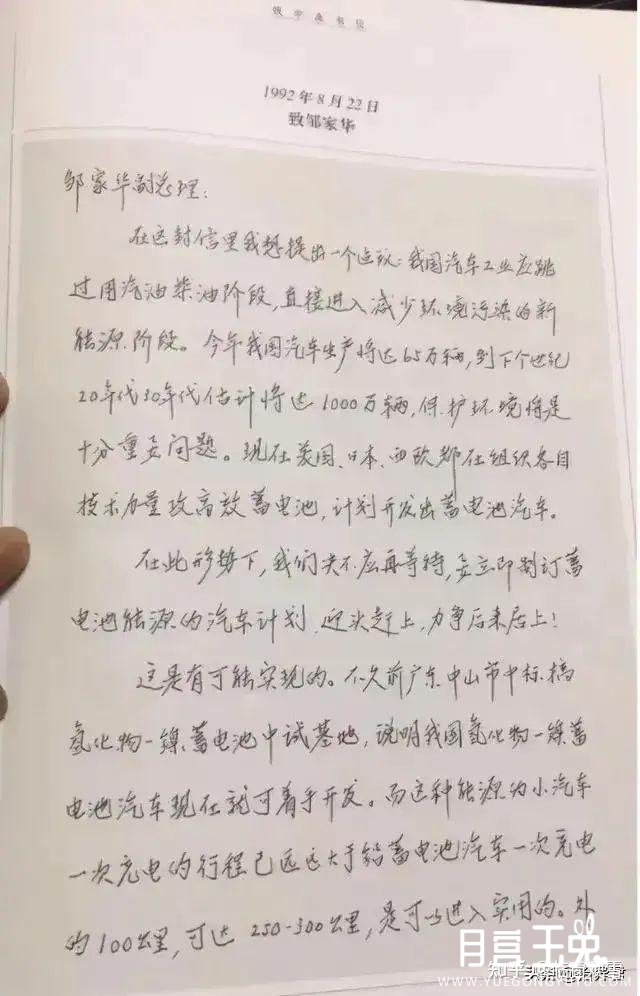 钱学森书信
1992年8月22日
致邹家华
邹家华副总理：
在这封信里我想提出一个建议：我国汽车工业应跳
过用汽油柴油阶段，直接进入减少环境污染的新
能源阶段。今年我国汽车生产将达65万辆，到下个世纪
20年代30年代估计将达1000万辆，保护环境将是
十分重要问题。现在美国、日本、西欧都在组织各自
技术力量攻高效蓄电池，计划开发出蓄电池汽车。
在此形势下，我们决不应再等待，要立即制订蓄
电池能源的汽车计划，迎头赶上，力争后来居上！
这是有可能实现的。不久前广东中山市中标搞
氢化物-镍蓄电池中试基地，说明我国氢化物-镍蓄
电池汽车现在就可着手开发。而这种能源的小汽车
一次充电的行程已远远大于铅蓄电池汽车一次充电
的100公里，可达250-300公里，是可以进入实用的。外
月言王兔
WWW.YUEGONGYUTU.COM
知乎